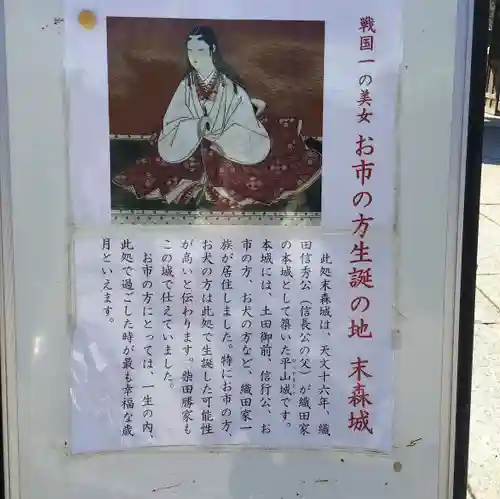 戦国一の美女 お市の方生誕の地 末森城
此処末森城は、天文十六年、織
田信秀公(信長公の父)が織田家
の本城として築いた平山城です。
本城には、土田御前、信行公、お
市の方、お犬の方など、織田家一
族が居住しました。特にお市の方、
お犬の方は此処で生誕した可能性
が高いと伝わります。柴田勝家も
この城で仕えていました。
お市の方にとっては、一生の内、
此処で過ごした時が最も幸福な歳
月といえます。